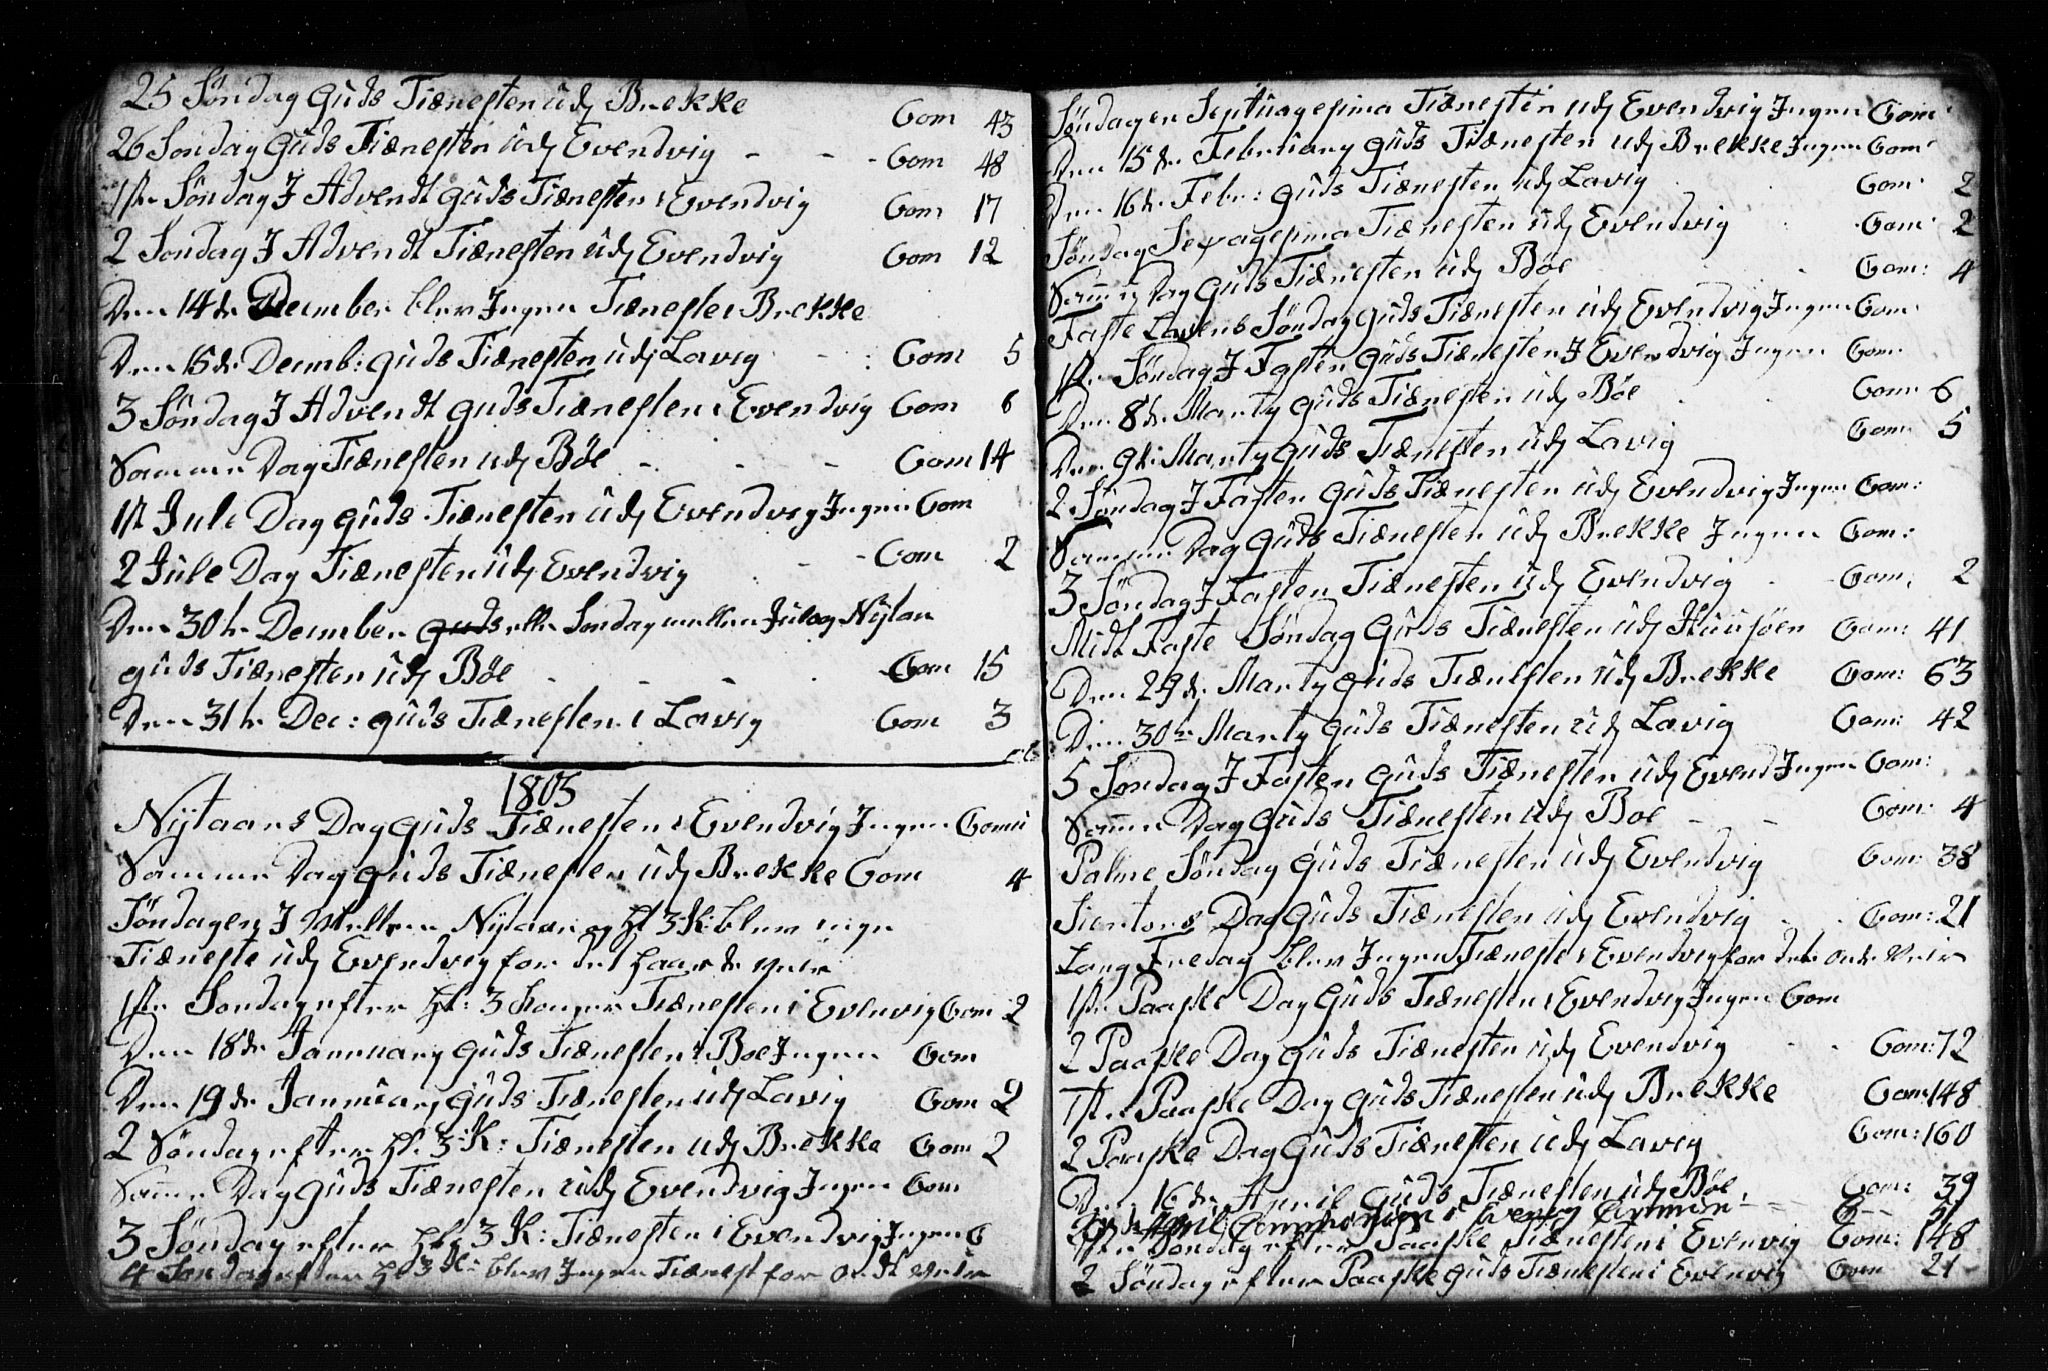 25 Søndag Guds Tiænesten udj Brekke Com 43
26 Søndag Guds Tiænesten udj Evendvig - - - Com 48
1ste Søndag J Advendt Guds Tiænesten i Evendvig Com 17
2 Søndag J Advendt Tiænesten udj Evendvig Com 12
Den 14de December blev Jngen Tiæneste i Brekke
Den 15de Decemb: Guds Tiænesten udj Lavig Com 5
3 Søndag J Advendt Guds Tiænesten i Evendvig Com 6
Samme Dag Tiænesten udj Böe - - - Com 14
1ste Jule Dag Guds Tiænesten udj Evendvig Jngen Com
2 Jule Dag Tiænesten udj Evendvig - - Com 2
Den 30te December Guds eller Søndag mellem Jul og Nytaar
Guds Tiænesten udj Böe - - - Com 15
Den 31te Dec: Guds Tiænesten i Lavig Com 3
1803
Nytaars Dag Guds Tiænesten i Evendvig Jngen Comu
Samme Dag Guds Tiænesten udj Brekke Com 4
Søndagen J Mellem Nytaar og Hl 3 K: blev ingen
Tiæneste udj Evendvig for det haarde Veir
1ste Søndag efter Hl: 3 Konger Tiænesten i Evenvig Com 2
Den 18de Januuary Guds Tiænesten i Boe Jngen Com
Den 19de Januuary Guds Tiænesten udj Lavig Com 2
2 Søndag efter Hl. 3 K: Tiænesten udj Brekke Com 2
Samme Dag Guds Tiænesten udj Evendvig Jngen Com
3 Søndag efter Hl: 3 K: Tiænesten i Evendvig Jngen C
4 Søndag efter Hl 3 K: blev Jngen Tiænest for ondt Veir
Søndagen Septuagesima Tiænesten udj Evendvig Jngen Com
Den 15de February Guds Tiænesten udj Brekke Jngen Com
Den 16de Febr: Guds Tiænesten udj Lavig Com 2
Søndag Sexagesima Tiænesten udj Evendvig Com 2
Samme Dag Guds Tiænesten udj Böe Com: 4
Faste Lavens Søndag Guds Tiænesten udj Evendvig Jngen Com
1ste Søndag J Fasten Guds Tiænesten J Evendvig Jngen Com
Den 8de Marty Guds Tiænesten udj Böe Com: 6
Den 9de Marty Guds Tiænesten udj Lavig Com: 5
2 Søndag J Fasten Guds Tiænesten udj Evendvig Jngen Com:
Samme Dag Guds Tiænesten udj Brekke Jngen Com:
3 Søndag J Fasten Tiænesten udj Evendvig - Com: 2
Midt Faste Søndag Guds Tiænesten udj Huusöen Com: 41
Den 29de Marty Guds Tiænesten udj Brekke Com: 63
Den 30te Marty Guds Tiænesten udj Lavig Com: 42
5 Søndag J Fasten Guds Tiænesten udj Evend Jngen Com:
Samme Dag Guds Tiænesten udj Boe - - Com: 4
Palme Søndag Guds Tiænesten udj Evendvig Com: 38
Siertors Dag Guds Tiænesten udj Evendvig - - Com: 21
Lang Fredag blev Jngen Tiæneste i Evendvig for det onde Veir
1ste Paaske Dag Guds Tiænesten i Evendvig Jngen Com
2 Paaske Dag Guds Tiænesten udj Evendvig - - Com: 72
1ste Paaske Dag Guds Tiænesten udj Brekke Com 148
2 Paaske Dag Guds Tiænesten udj Lavig Com: 160
Den 16de April Guds Tiænesten udj Böe, Com: 39
April
1ste Søndag efter Paaske Tiænesten i Evenvig Com: 148
2 Søndag efter Paaske Guds Tiænesten i Evenvig Com 21